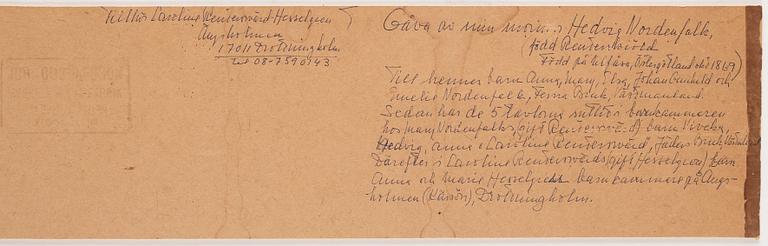 Tillhör Caroline Reutersvärd-Hesselgren
Ängsholmen
17011 Drottningholm
tel 08-7590943
Gåva av min mormor Hedvig Nordenfalk,
född Reuterskiöld
född på Ulfåsa, Östergötland 1869)
Till hennes barn Anna, Mary, Ebba, Johan Gunhild och
Emelie Nordenfalk, Ferna Bruk, Västmanland.
Sedan har de 5 tavlorna suttit i barnkammaren
hos Mary Nordenfalk, (gift Reutersvärd) barn Viveka,
Hedvig, Anna o Caroline Reutersvärd, Bruk
Därefter i Caroline Reutersvärds (gift Hesselgren) barn
Anna och Marie Hesselgren barnkammare på Ängs-
holmen (Kärsön), Drottningholm.